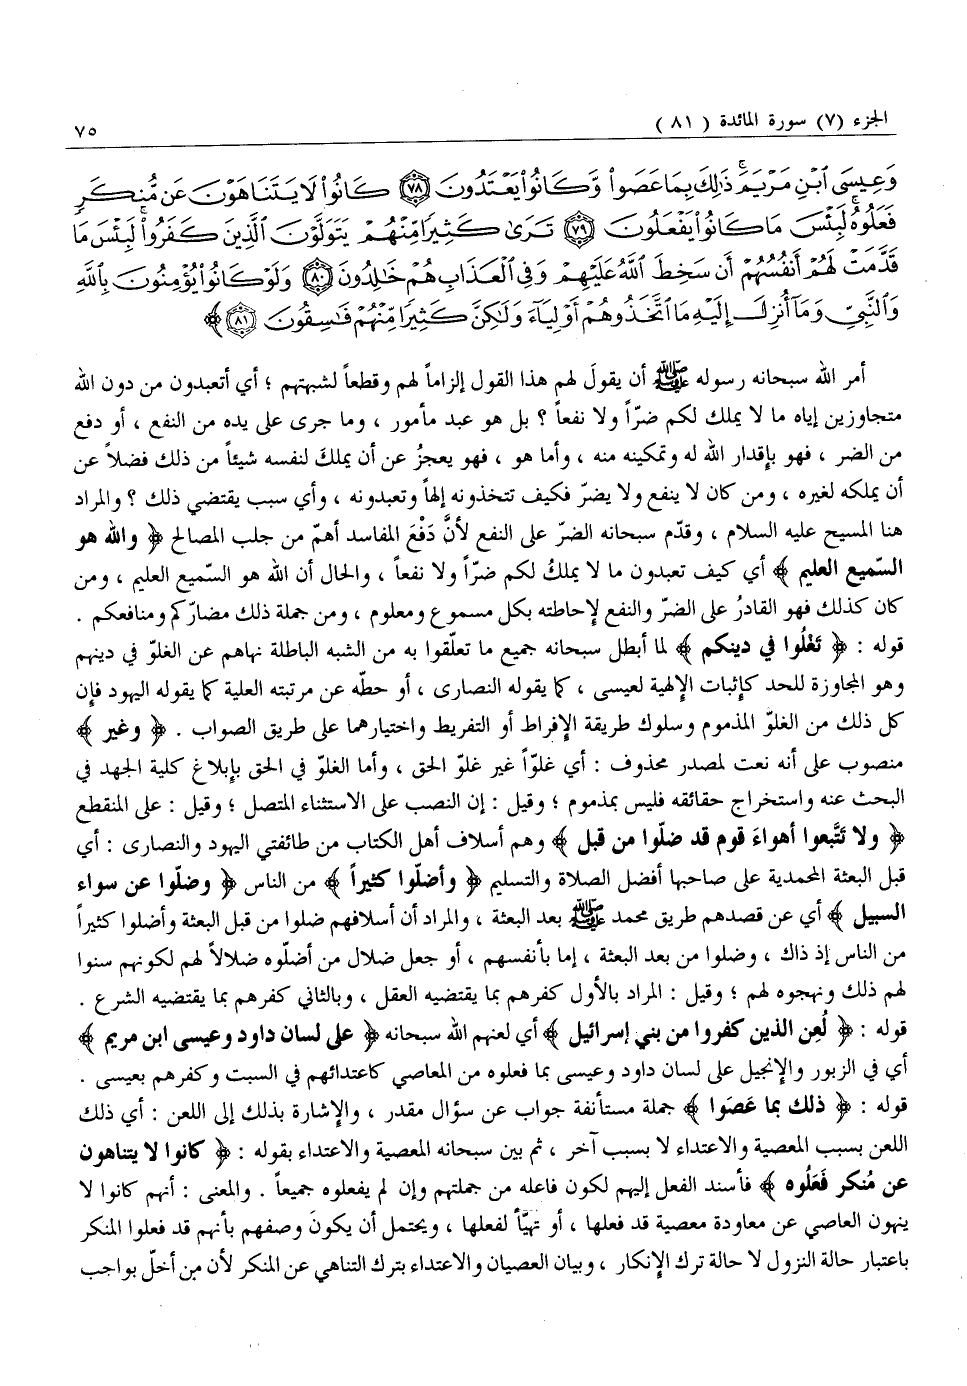 الجزء (٧) سورة المائدة ( ٨١ ) ٧٥
وَعِيسَى ٱبْنِ مَرْيَمَ ذَٰلِكَ بِمَا عَصَوا۟ وَّكَانُوا۟ يَعْتَدُونَ ٧٨ كَانُوا۟ لَا يَتَنَاهَوْنَ عَن مُّنكَرٍ
فَعَلُوهُ لَبِئْسَ مَا كَانُوا۟ يَفْعَلُونَ ٧٩ تَرَىٰ كَثِيرًا مِّنْهُمْ يَتَوَلَّوْنَ ٱلَّذِينَ كَفَرُوا۟ لَبِئْسَ مَا
قَدَّمَتْ لَهُمْ أَنفُسُهُمْ أَن سَخِطَ ٱللَّهُ عَلَيْهِمْ وَفِى ٱلْعَذَابِ هُمْ خَٰلِدُونَ ٨٠ وَلَوْ كَانُوا۟ يُؤْمِنُونَ بِٱللَّهِ
وَٱلنَّبِىِّ وَمَآ أُنزِلَ إِلَيْهِ مَا ٱتَّخَذُوهُمْ أَوْلِيَآءَ وَلَٰكِنَّ كَثِيرًا مِّنْهُمْ فَٰسِقُونَ ٨١ ﴾
أمر الله سبحانه رسوله ﷺ أن يقولَ لهم هذا القول إلزاماً لهم وقطعاً لشبهتهم ؛ أي أتعبدون من دون الله
متجاوزين إياه ما لا يملك لكم ضرّاً ولا نفعاً ؟ بل هو عبد مأمور ، وما جرى على يده من النفع ، أو دفع
من الضر ، فهو بإقدار الله له وتمكينه منه ، وأما هو ، فهو يعجزُ عن أن يملكَ لنفسه شيئاً من ذلك فضلاً عن
أن يملكه لغيره ، ومن كان لا ينفع ولا يضرّ فكيف تتخذونه إلهاً وتعبدونه ، وأي سبب يقتضي ذلك ؟ والمراد
هنا المسيح عليه السلام ، وقدّم سبحانه الضرّ على النفع لأنَّ دَفْعَ المفاسد أهمّ من جلب المصالح ﴿ والله هو
السّميع العليم ﴾ أي كيف تعبدون ما لا يملكُ لكم ضرّاً ولا نفعاً ، والحال أن الله هو السّميع العليم ، ومن
كان كذلك فهو القادرُ على الضرّ والنفع لإحاطته بكل مسموع ومعلوم ، ومن جملة ذلك مضارّكم ومنافعكم .
قوله : ﴿ تَغْلُوا في دينكم ﴾ لما أبطل سبحانه جميع ما تعلّقوا به من الشبه الباطلة نهاهم عن الغلوّ في دينهم
وهو المجاوزة للحد كإثبات الإلهية لعيسى ، كما يقوله النصارى ، أو حطّه عن مرتبته العلية كما يقوله اليهود فإن
كل ذلك من الغلوّ المذموم وسلوك طريقة الإفراط أو التفريط واختيارهما على طريق الصواب . ﴿ وغير ﴾
منصوب على أنه نعت لمصدر محذوف : أي غلوّاً غير غلوّ الحق ، وأما الغلوّ في الحق بإبلاغ كلية الجهد في
البحث عنه واستخراج حقائقه فليس بمذموم ؛ وقيل : إن النصب على الاستثناء المتصل ؛ وقيل : على المنقطع
﴿ ولا تَتَّبعوا أهواءَ قوم قد ضلّوا من قبل ﴾ وهم أسلاف أهل الكتاب من طائفتي اليهود والنصارى : أي
قبل البعثة المحمدية على صاحبها أفضل الصلاة والتسليم ﴿ وأضلّوا كثيراً ﴾ من الناس ﴿ وضلّوا عن سواء
السبيل ﴾ أي عن قصدهم طريق محمد ﷺ بعد البعثة ، والمراد أن أسلافهم ضلوا من قبل البعثة وأضلوا كثيراً
من الناس إذ ذاك ، وضلوا من بعد البعثة ، إما بأنفسهم ، أو جعل ضلال من أضلّوه ضلالاً لهم لكونهم سنوا
لهم ذلك ونهجوه لهم ؛ وقيل : المراد بالأول كفرهم بما يقتضيه العقل ، وبالثاني كفرهم بما يقتضيه الشرع .
قوله : ﴿ لُعِن الذين كفروا من بني إسرائيل ﴾ أي لعنهم الله سبحانه ﴿ على لسان داود وعيسى ابن مريم ﴾
أي في الزبور والإنجيل على لسان داود وعيسى بما فعلوه من المعاصي كاعتدائهم في السبت وكفرهم بعيسى .
قوله : ﴿ ذلك بما عَصَوا ﴾ جملة مستأنفة جواب عن سؤال مقدر ، والإشارة بذلك إلى اللعن : أي ذلك
اللعن بسبب المعصية والاعتداء لا بسبب آخر ، ثم بين سبحانه المعصية والاعتداء بقوله : ﴿ كانوا لا يتناهون
عن مُنكر فَعَلُوه ﴾ فأسند الفعل إليهم لكون فاعله من جملتهم وإن لم يفعلوه جميعاً . والمعنى : أنهم كانوا لا
ينهون العاصي عن معاودة معصية قد فعلها ، أو تهيّأ لفعلها ، ويحتمل أن يكونَ وصفهم بأنهم قد فعلوا المنكر
باعتبار حالة النزول لا حالة ترك الإنكار ، وبيان العصيان والاعتداء بترك التناهي عن المنكر لأن من أخلّ بواجب